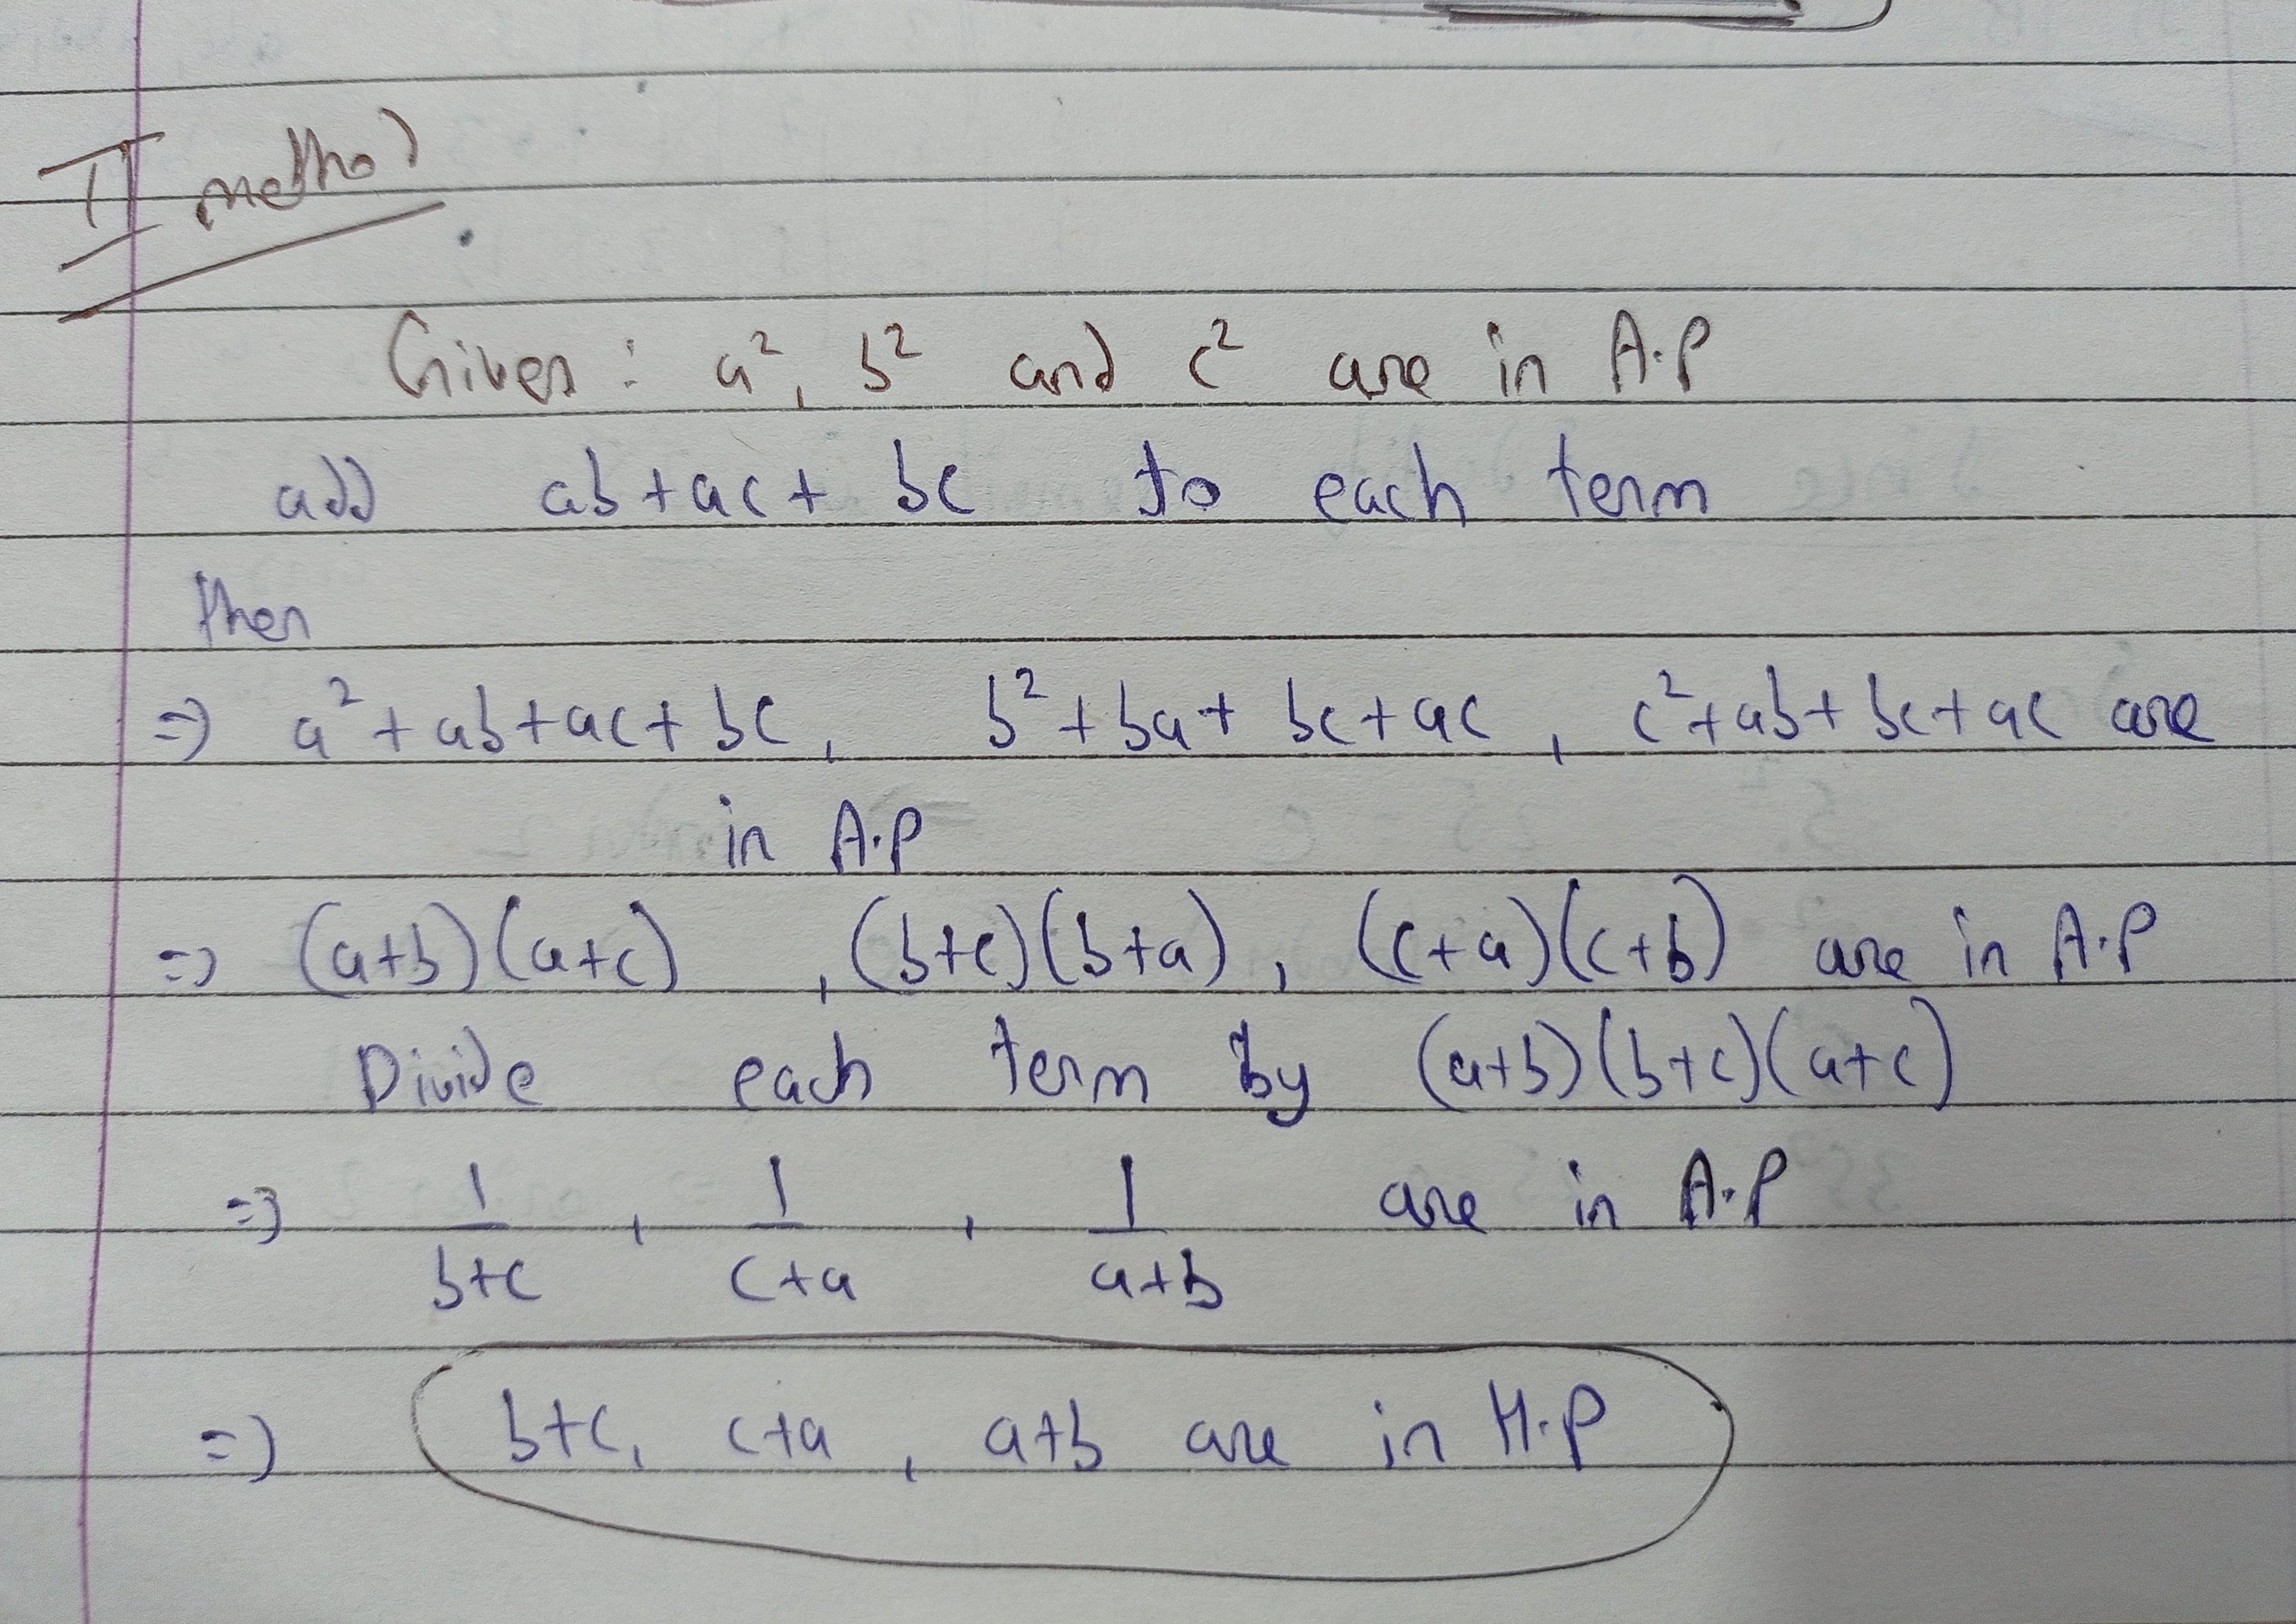 II method
Given : a², b² and c² are in A.P
add ab+ac+ bc to each term
then
=> a²+ab+ac+bc, b²+ba+ bc+ac, c²+ab+bc+ac are
in A.P
=> (a+b)(a+c) , (b+c)(b+a), (c+a)(c+b) are in A.P
Divide each term by (a+b)(b+c)(a+c)
=> 1/(b+c) , 1/(c+a) , 1/(a+b) are in A.P
=> b+c, c+a, a+b are in H.P